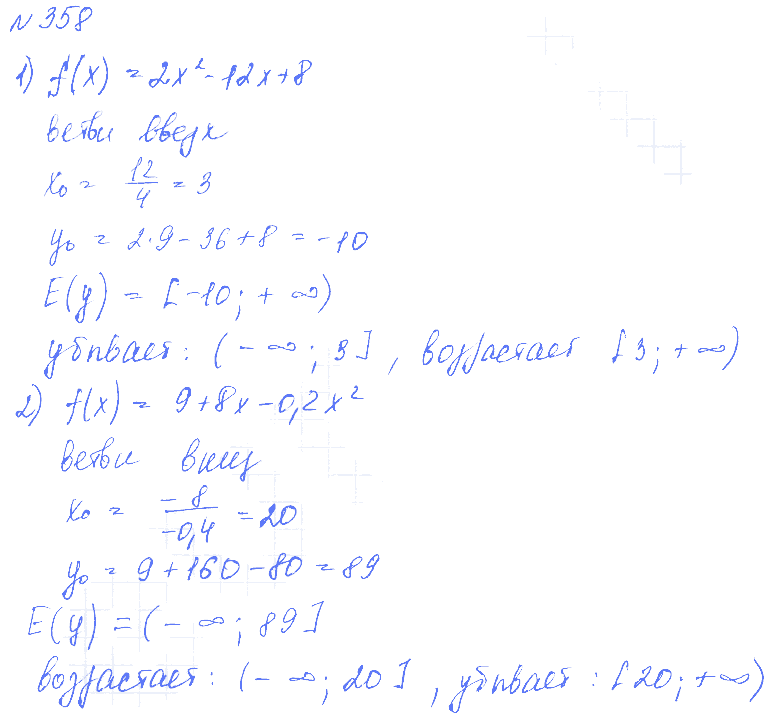 №358
1) f(x) = 2x² - 12x + 8
ветви вверх
x₀ = 12/4 = 3
y₀ = 2·9 - 36 + 8 = -10
E(y) = [-10; +∞)
убывает: (-∞; 3], возрастает [3; +∞)
2) f(x) = 9 + 8x - 0,2x²
ветви вниз
x₀ = -8/-0,4 = 20
y₀ = 9 + 160 - 80 = 89
E(y) = (-∞; 89]
возрастает: (-∞; 20], убывает: [20; +∞)